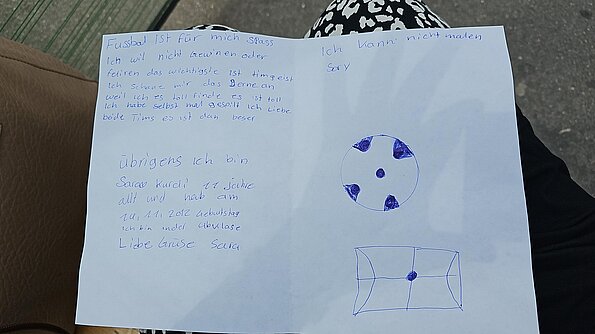 Fussbal Ist für mich spass
Ich wil nicht Gewinen oder
feliren das wichtigste ist timgeist
Ich schaue mir das Gerne an
weil ich es toll finde es ist toll
Ich habe selbst mal gespilt ich Liebe
beide Tims es ist dan beser
übrigens ich bin
Sara Kurdi 11 jahre
allt und hab am
10.11.2012 Geburtstag
ich bin
Liebe Grüse Sara
Ich kann nicht malen
Sory